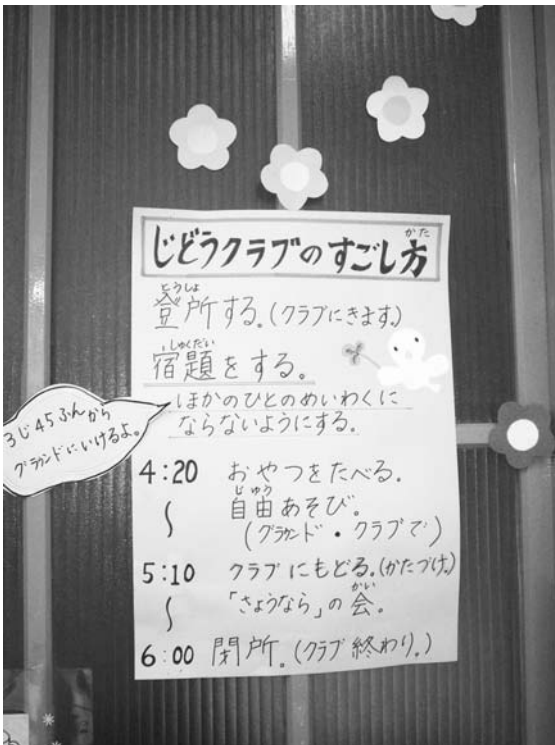 じどうクラブのすごし方
かた
とうしょ
登所する。(クラブにきます。)
しゅくだい
宿題をする。
ほかのひとのめいわくに
ならないようにする。
3じ45ふんから
グラウンドにいけるよ。
4:20 おやつをたべる。
じゆう
〜 自由あそび。
(グラウンド・クラブで)
5:10 クラブにもどる。(かたづけ。)
かい
〜 「さょうなら」の会。
6:00 閉所。(クラブ終わり。)